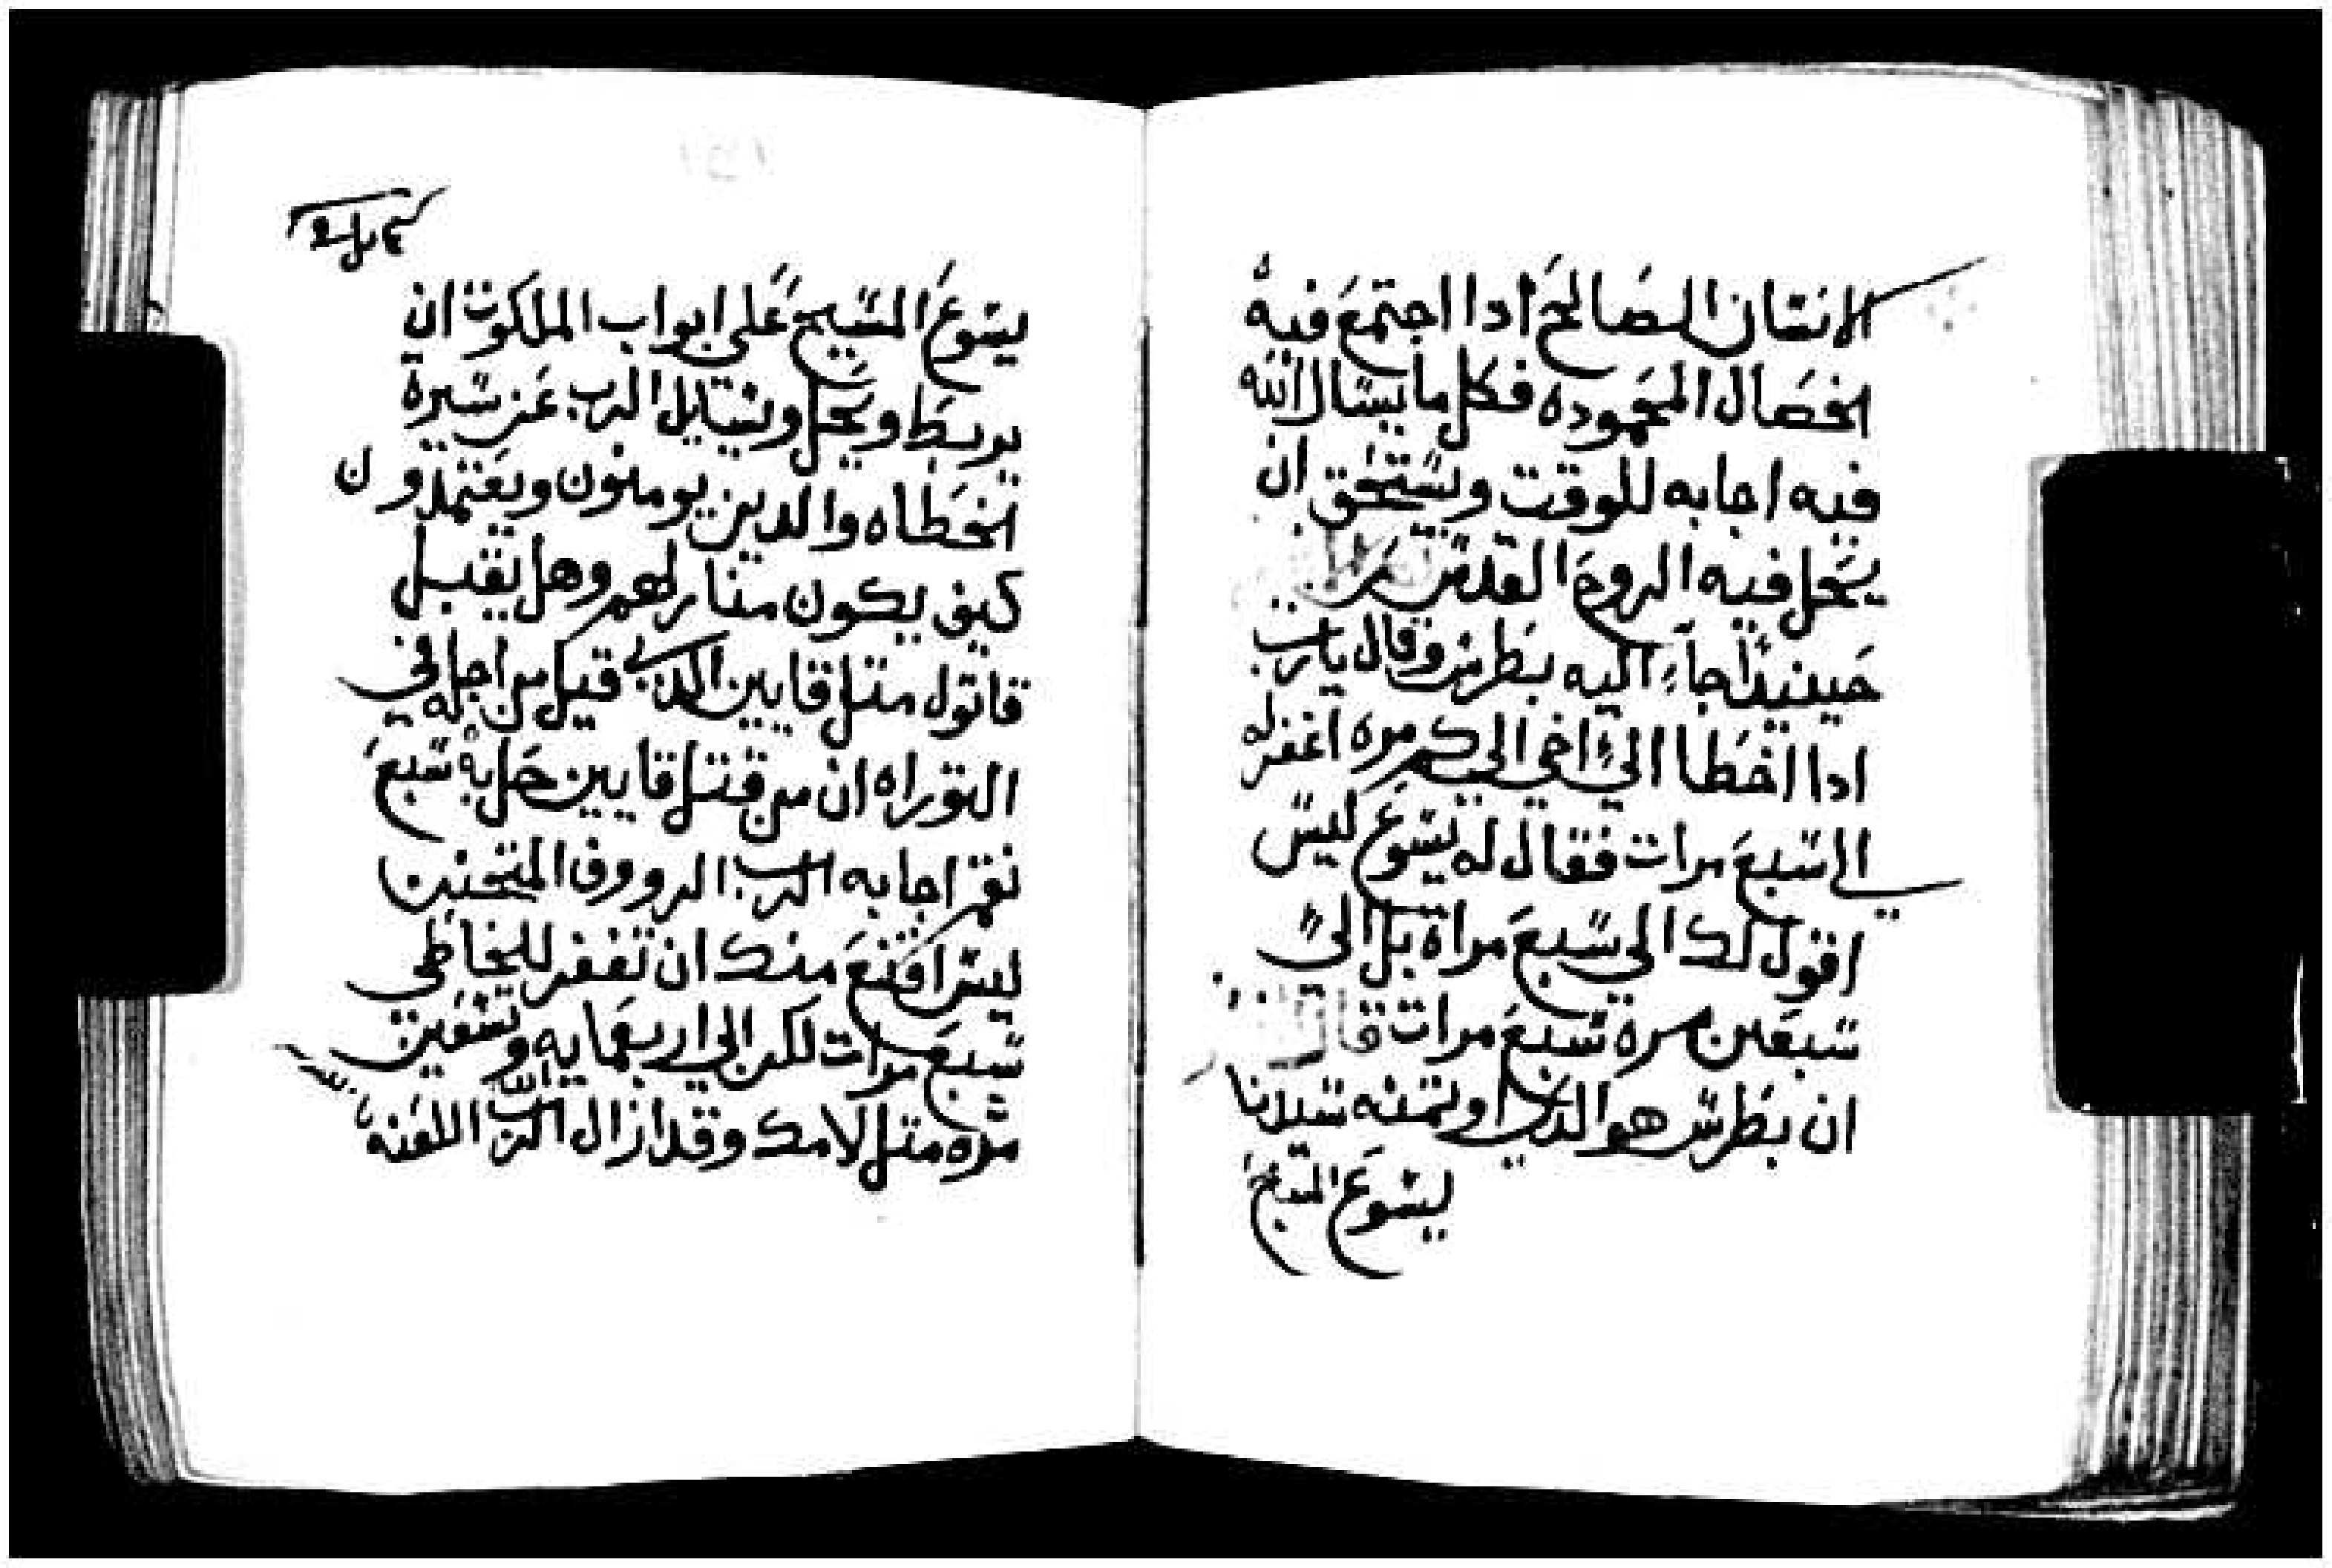 الانسان الصالح ادا اجتمع فيه
الخصال المحموده فكل ما يسال الله
فيه اجابه للوقت ويستحق ان
يحل فيه الروح القدس
حينيدا جاء اليه بطرس وقال يارب
ادا اخطا الي اخي الي كم مره اغفر له
الي سبع مرات فقال له يسوع ليس
اقول لك الي سبع مراة بل الي
سبعين مرة سبع مرات قال
ان بطرس هو الدي اوتمنه سيدنا
يسوع المسيح
يسوع المسيح علي ابواب الملكوت ان
يربط ويحل ونسل الرب عن سيرة
الخطاه والدين يومنون ويعتمدون
كيف يكون منا لهم وهل يقبل
قاتول متل قايين الدي قيل من اجله في
التوراه ان من قتل قايين حل به سبع
نقم اجابه الرب الرووف المتحنن
ليس اقنع منك ان تغفر للخاطي
سبع مرات لكن الي اربعمايه وتسعين
مره متل لامك وقد ازال الرب اللعنه